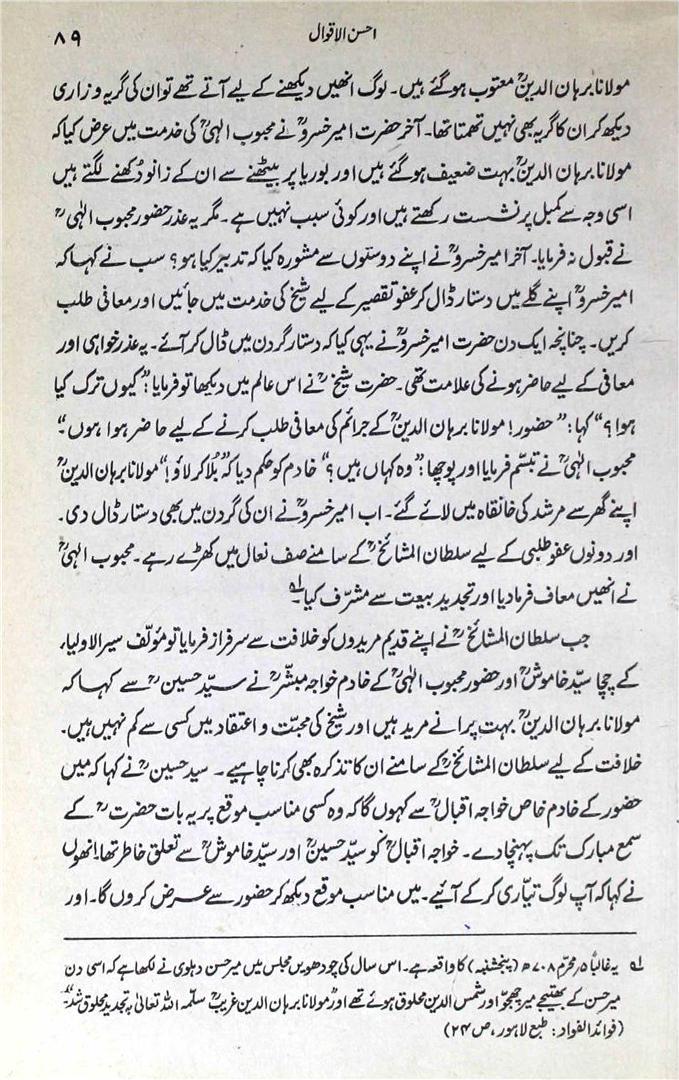 احسن الاقوال
۸۹
مولانا برہان الدینؒ معتوب ہوگئے ہیں۔ لوگ انھیں دیکھنے کے لیے آتے تھے تو ان کی گریہ و زاری
دیکھ کر ان کا گریہ بھی نہیں تھمتا تھا۔ آخر حضرت امیر خسروؒ نے محبوب الہٰیؒ کی خدمت میں عرض کیا کہ
مولانا برہان الدینؒ بہت ضعیف ہوگئے ہیں اور بوریا پر بیٹھنے سے ان کے زانو دُکھنے لگتے ہیں
اسی وجہ سے کمبل پر نشست رکھتے ہیں اور کوئی سبب نہیں ہے۔ مگر یہ عذر حضور محبوب الہٰیؒ
نے قبول نہ فرمایا۔ آخر امیر خسروؒ نے اپنے دوستوں سے مشورہ کیا کہ تدبیر کیا ہو؟ سب نے کہا کہ
امیر خسروؒ اپنے گلے میں دستار ڈال کر عفو تقصیر کے لیے شیخ کی خدمت میں جائیں اور معافی طلب
کریں۔ چنانچہ ایک دن حضرت امیر خسروؒ نے یہی کیا کہ دستار گردن میں ڈال کر آئے۔ یہ عذر خواہی اور
معافی کے لیے حاضر ہونے کی علامت تھی۔ حضرت شیخؒ نے اس عالم میں دیکھا تو فرمایا: ”کیوں ترک کیا
ہوا؟“ کہا: ”حضور! مولانا برہان الدینؒ کے جرائم کی معافی طلب کرنے کے لیے حاضر ہوا ہوں“۔
محبوب الہٰیؒ نے تبسّم فرمایا اور پوچھا: ”وہ کہاں ہیں؟“ خادم کو حکم دیا کہ ”بُلا کر لاؤ!“ مولانا برہان الدینؒ
اپنے گھر سے مرشد کی خانقاہ میں لائے گئے۔ اب امیر خسروؒ نے ان کی گردن میں بھی دستار ڈال دی۔
اور دونوں عفو طلبی کے لیے سلطان المشائخؒ کے سامنے صف نعال میں کھڑے رہے۔ محبوب الہٰیؒ
نے انھیں معاف فرما دیا اور تجدید بیعت سے مشرّف کیا۔ لہ
جب سلطان المشائخؒ نے اپنے قدیم مریدوں کو خلافت سے سرفراز فرمایا تو مؤلّف سیر الاولیاء
کے چچا سیّد خاموشؒ اور حضور محبوب الہٰیؒ کے خادم خواجہ مبشّرؒ نے سیّد حسینؒ سے کہا کہ
مولانا برہان الدینؒ بہت پرانے مرید ہیں اور شیخ کی محبّت و اعتقاد میں کسی سے کم نہیں ہیں۔
خلافت کے لیے سلطان المشائخؒ کے سامنے ان کا تذکرہ بھی کرنا چاہیے۔ سید حسینؒ نے کہا کہ میں
حضور کے خادم خاص خواجہ اقبالؒ سے کہوں گا کہ وہ کسی مناسب موقع پر یہ بات حضرتؒ کے
سمع مبارک تک پہنچا دے۔ خواجہ اقبالؒ کو سیّد حسینؒ اور سیّد خاموشؒ سے تعلق خاطر تھا۔ انھوں
نے کہا کہ آپ لوگ تیّاری کر کے آئیے۔ میں مناسب موقع دیکھ کر حضور سے عرض کروں گا۔ اور
لہ یہ غالباً ۵ محرّم ۷۰۸ھ (پنجشنبہ) کا واقعہ ہے۔ اس سال کی چودھویں مجلس میں میر حسن دہلوی نے لکھا ہے کہ اسی دن
میر حسن کے بھتیجے میر چھجّو اور شمس الدین محلوق ہوئے تھے اور ”مولانا برہان الدین غریبؒ سلّمہ اللہ تعالیٰ بہ تجدید محلوق شد“۔
(فوائد الفواد: طبع لاہور، ص ۲۴)